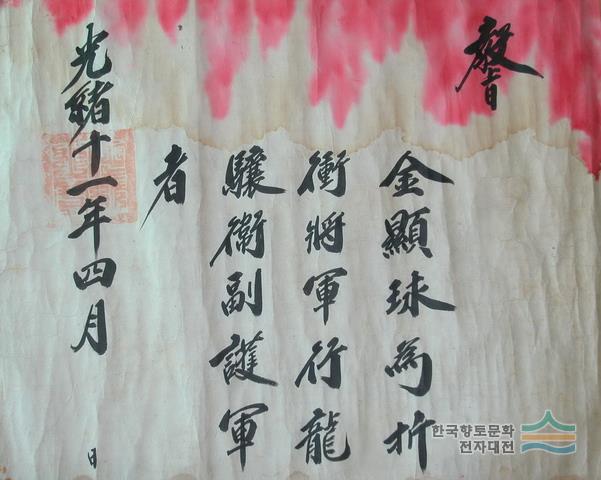 敎旨
金顯球爲折
衝將軍行龍
驤衛副護軍
者
光緖十一年四月 日
한국향토문화
전자대전